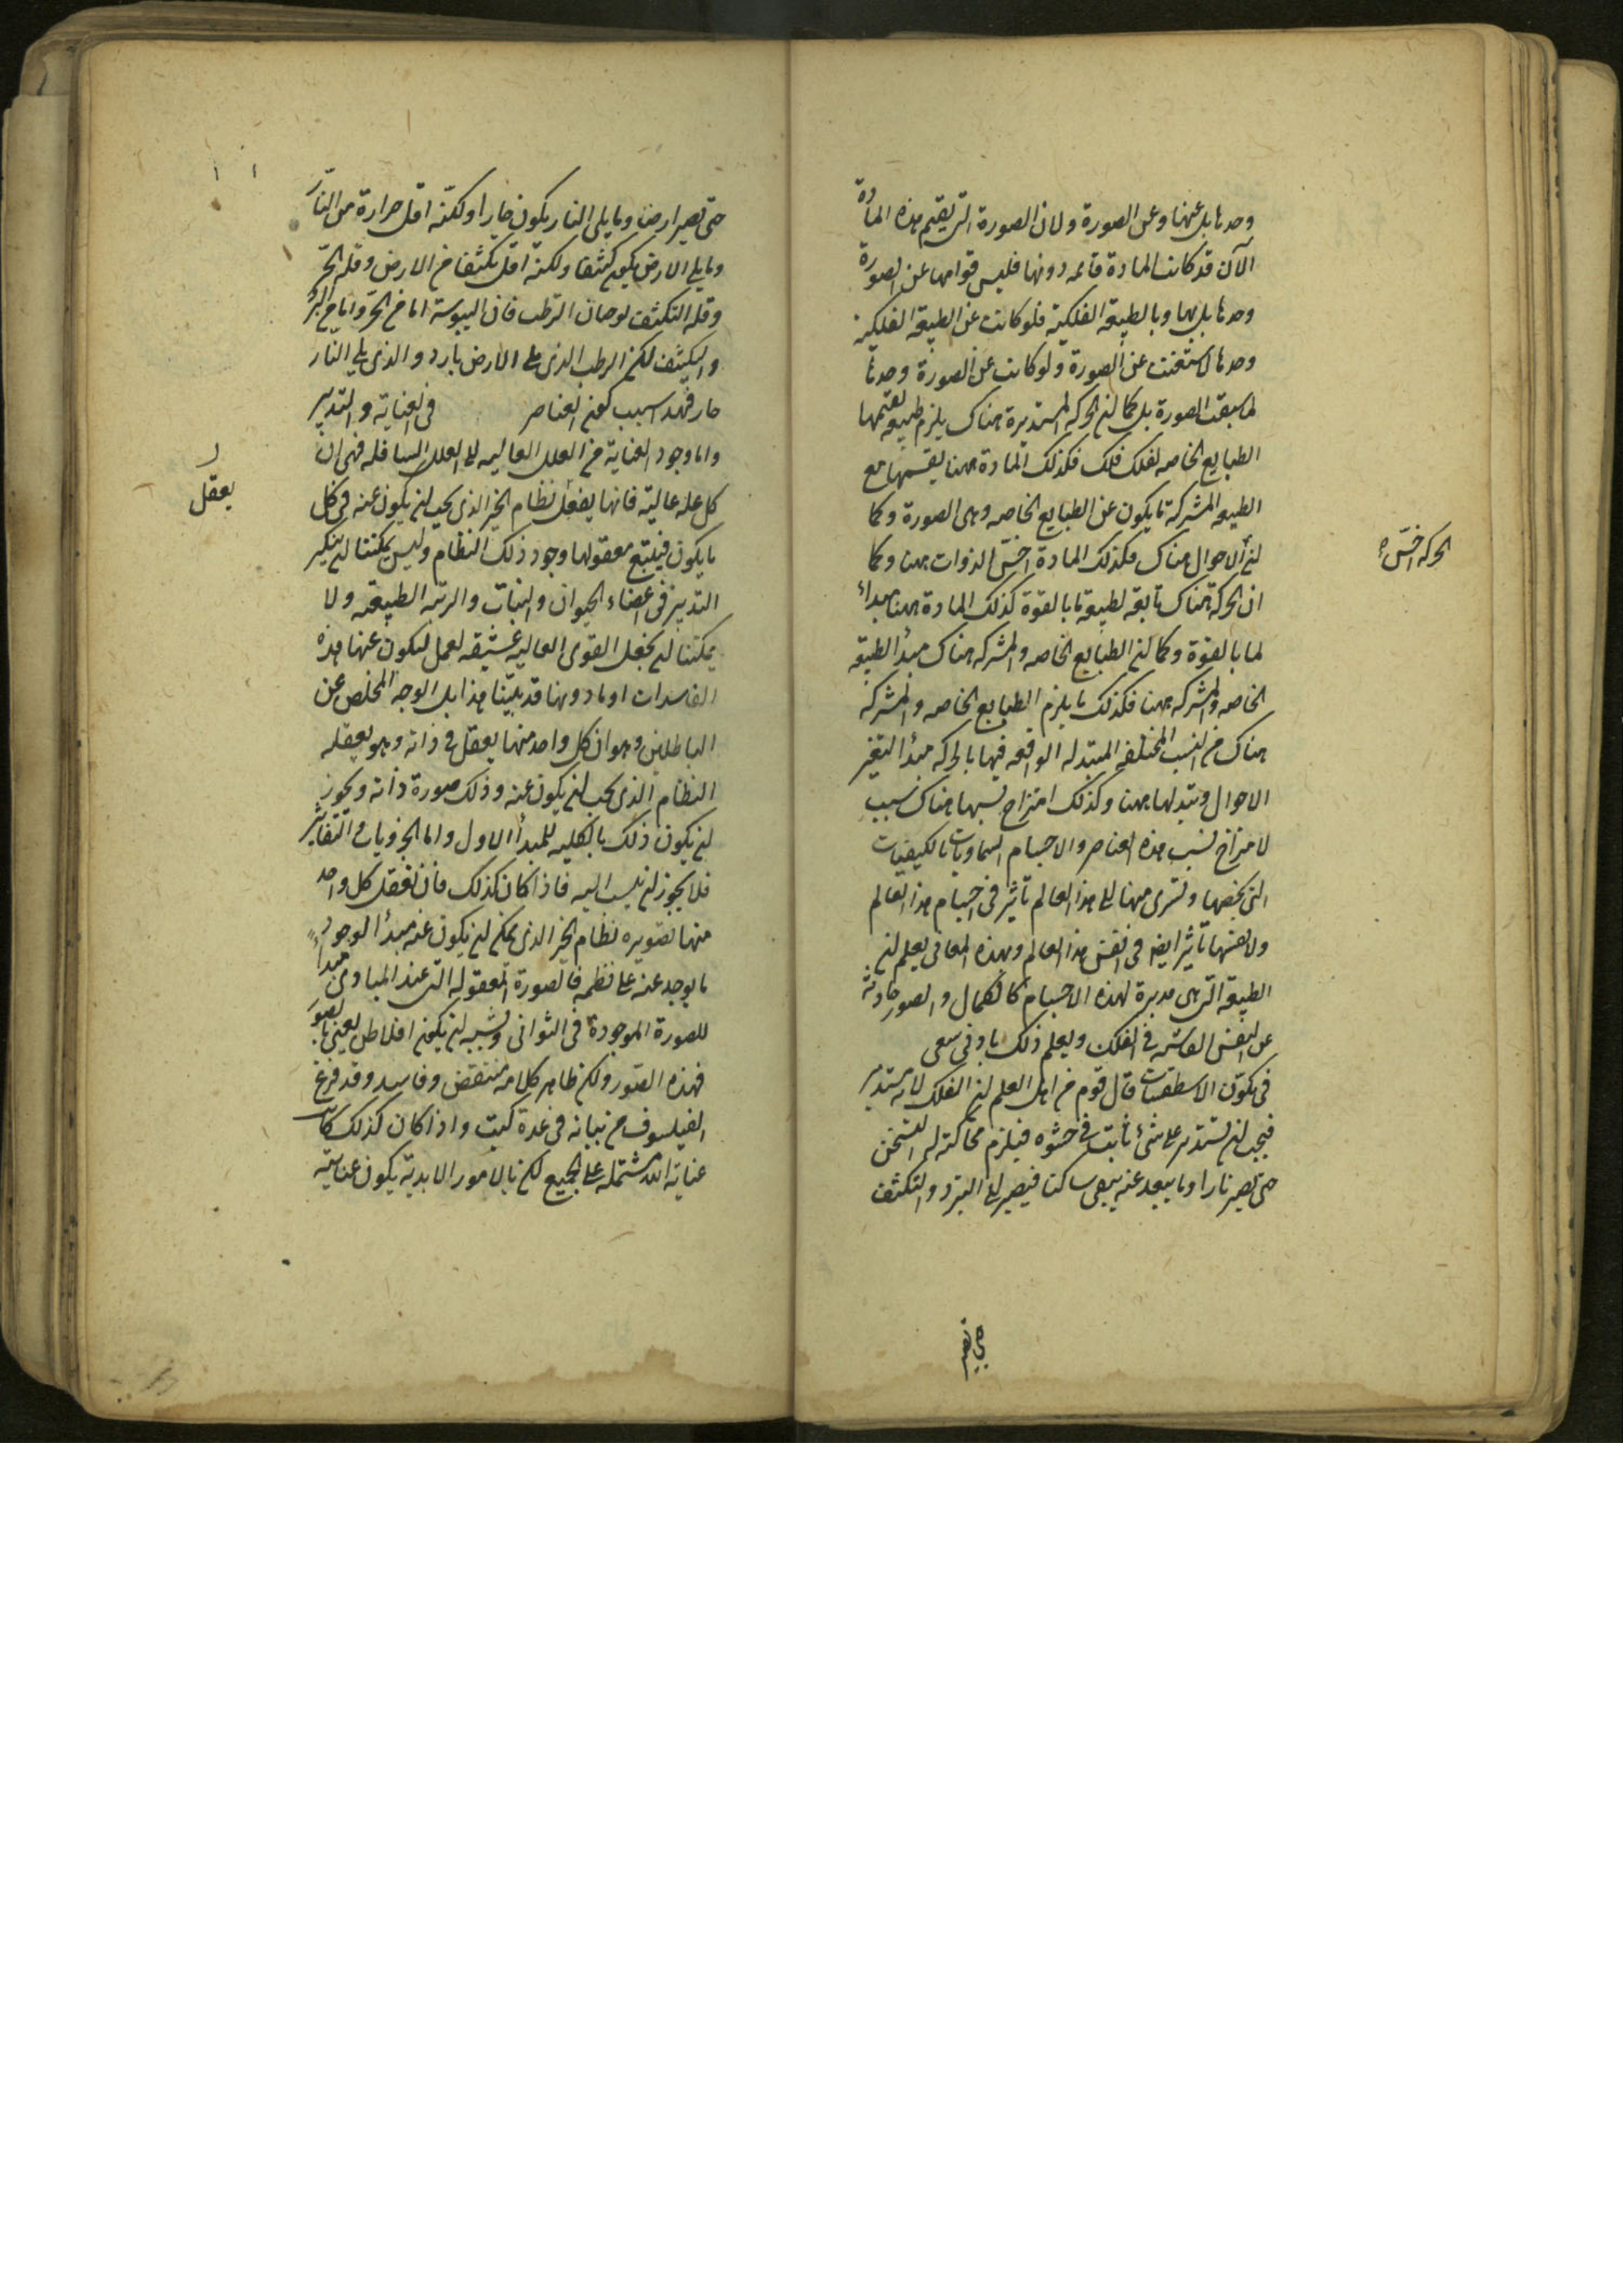 وحدها بل عنها وعن الصورة ولان الصورة التى يقيم هذه المادة
الآن قد كانت المادة قائمه دونها فليس قوامها عن الصورة
وحدها بل بها وبالطبيعة الفلكية فلو كانت عن الطبيعة الفلكية
وحدها لاستغنت عن الصورة ولو كانت عن الصورة وحدها
لما سبقت الصورة بل كما ان الحركه المستديرة هناك يلزم طبيعه تقيمها
الطبايع الخاصه لفلك فلك فكذلك المادة ههنا يقيمها مع
الطبيعه المشتركة ما يكون عن الطبايع الخاصه وهى الصورة وكما
الحركه اخسّ
ان الاحوال هناك فكذلك المادة اخسّ الذوات ههنا وكما
ان الحركة هناك تابعة لطبيعة ما بالقوة كذلك المادة ههنا مبدأ
لما بالقوة وكما ان الطبايع الخاصه والمشتركه هناك مبدأ الطبيعه
الخاصه والمشتركه ههنا فكذلك ما يلزم الطبايع الخاصه والمشتركه
هناك من النسب المختلفه المتبدله الواقعه فيها بالحركه مبدأ التغير
الاحوال وتبدلها ههنا وكذلك امتزاج نسبها هناك سبب
لامتزاج نسب هذه العناصر والاجسام السماويات بالكيفيات
التى يخصها وتسرى منها الى هذا العالم تاثير فى اجسام هذا العالم
ولانفسها تأثير ايضا فى انفس هذا العالم وبهذه المعانى يعلم ان
الطبيعة التى هى مدبرة لهذه الاجسام كالكمال والصور حادثة
عن النفس الفاشيه فى الفلك ويعلم ذلك بادنى سعى
فى تكوّن الاسطقسات قال قوم من اهل العلم ان الفلك لانه مستدير
فيجب ان يستدير على شئ ثابت فى حشوه فيلزم محاكته له التسخن
حتى تصير نارا وما يبعد عنه يبقى ساكنا فيصير الى التبرد والتكثف
حتى تصير
حتى تصير ارضا وما يلى النار يكون حارا ولكنه اقل حرارة من النار
وما يلى الارض يكون كثيفا ولكنه اقل تكثفا من الارض وقله الحر
وقله التكثف يوجبان الترطب فان اليبوسة اما من الحر واما من البرد
والتكثف لكن الرطب الذى يلى الارض بارد والذى يلى النار
حار فهذا سبب كون العناصر فى العناية والتدبير
واما وجود العناية من العلل العاليه على العلل السافله فهى ان
يعقل
كل علة عالية فانها يفعل نظام الخير الذى يجب ان يكون عنه فى كل
ما يكون فيتبع معقولها وجود ذلك النظام وليس يمكننا ان ننكر
التدبير فى اعضاء الحيوان والنبات والزينه الطبيعيه ولا
يمكننا ان نجعل القوى العاليه عشيقه لعمل ليكون عنها هذه
الفاسدات او ما دونها قد بيّنا هذا بل الوجه المخلص عن
الباطلين وهو ان كل واحد منها يعقل فى ذاته وهو يعقله
النظام الذى يجب ان يكون عنه وذلك صورة ذاته ويجوز
ان يكون ذلك بالكليه للمبدأ الاول واما الجزويات والتغاير
فلا يجوز ان ينسب اليه فاذا كان كذلك فان تعقل كل واحد
منها تصويره نظام الخير الذى يمكن ان يكون عنه مبدأ لوجود
ما يوجد عنه على نظمه فالصورة المعقوله التى عند المبادى مبدأ
للصورة الموجودة فى الثوانى ويشبه ان يكون افلاطن يعنى بالصور
فهذه الصور ولكن ظاهر كلامه منتقض وفاسد وقد فرغ
الفيلسوف من بيانه فى عدة كتب واذا كان كذلك كانت
عناية الله مشتمله على الجميع لكن بالامور الابدية يكون عنايته